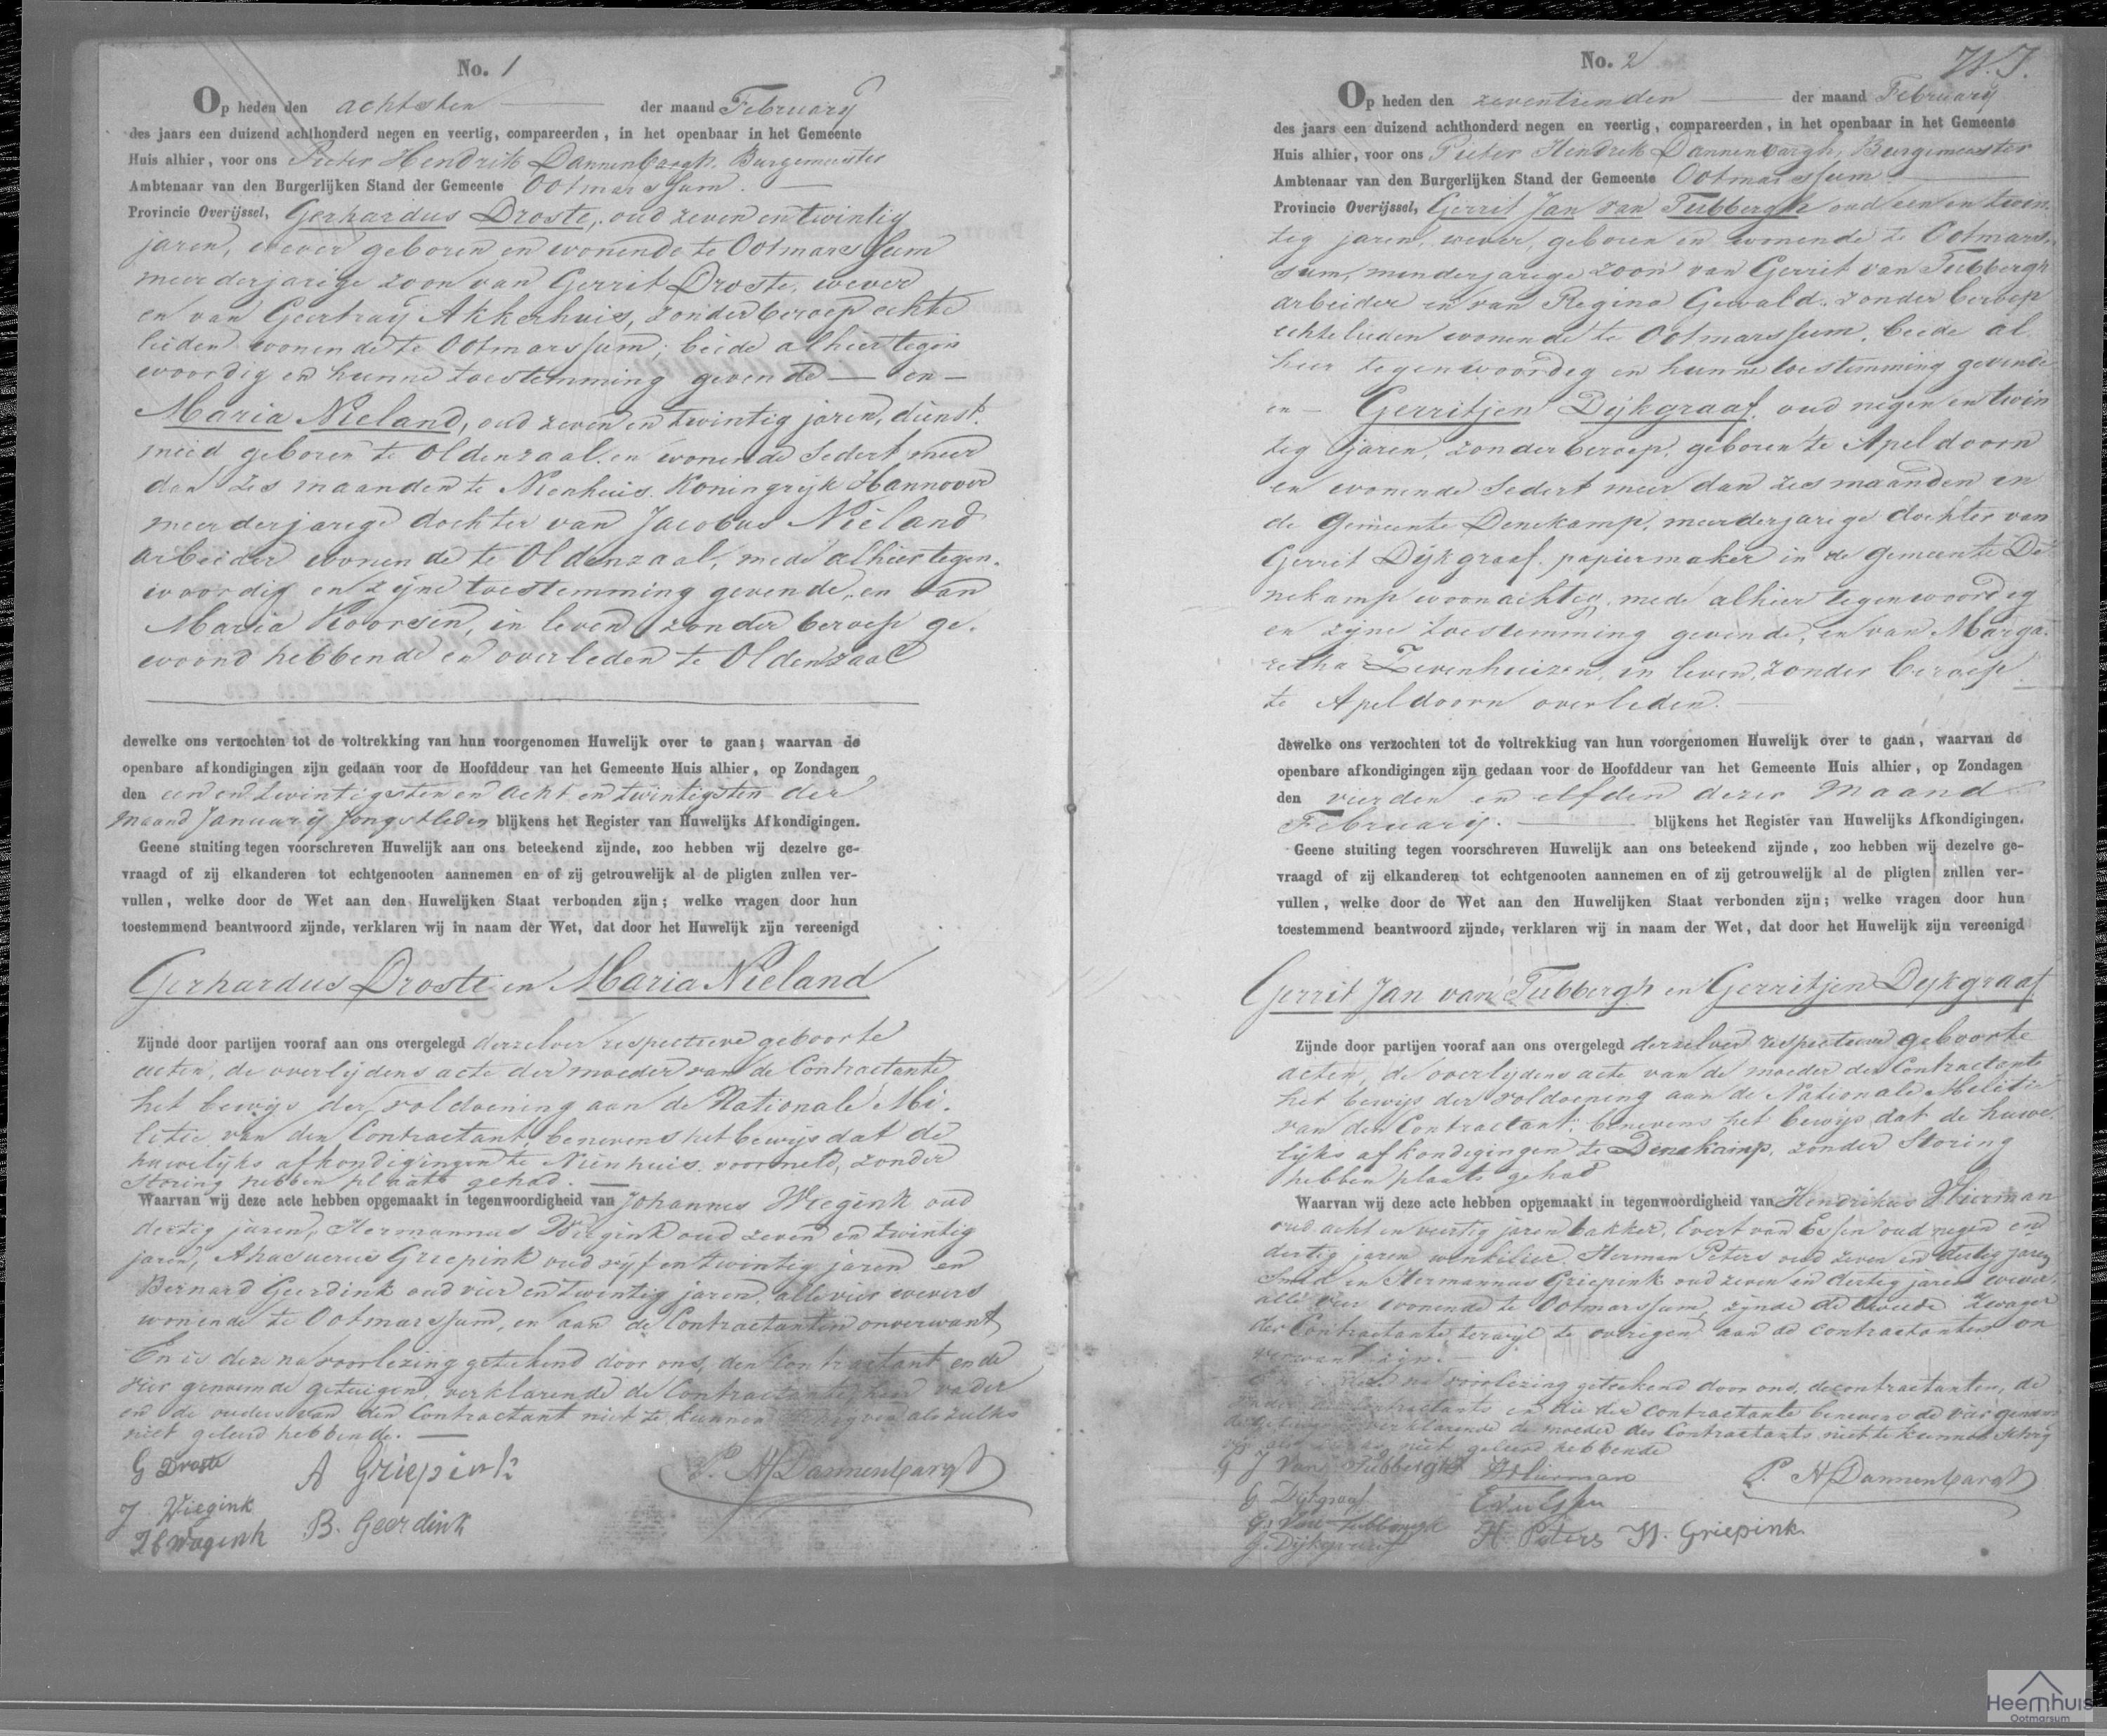 No. 1
Op heden den achtsten der maand February
des jaars een duizend achthonderd negen en veertig, compareerden, in het openbaar in het Gemeente
Huis alhier, voor ons Pieter Hendrik Dannenbargh, Burgemeester
Ambtenaar van den Burgerlijken Stand der Gemeente Ootmarssum.
Provincie Overijssel, Gerhardus Droste, oud zeven en twintig
jaren, wever geboren en wonende te Ootmarssum
meerderjarige zoon van Gerrit Droste, wever
en van Geertruy Akkerhuis, zonder beroep echte
lieden wonende te Ootmarssum, beide alhier tegen
woordig en hunne toestemming gevende — en —
Maria Nieland, oud zeven en twintig jaren, dienst
meid geboren te Oldenzaal en wonende sedert meer
dan zes maanden te Nienhuis Koningryk Hannover
meerderjarige dochter van Jacobus Nieland
arbeider wonende te Oldenzaal, mede alhier tegen-
woordig en zyne toestemming gevende, en van
Maria Koorsen, in leven zonder beroep ge-
woond hebbende en overleden te Oldenzaal
dewelke ons verzochten tot de voltrekking van hun voorgenomen Huwelijk over te gaan; waarvan de
openbare afkondigingen zijn gedaan voor de Hoofddeur van het Gemeente Huis alhier, op Zondagen
den een en twintigsten en acht en twintigsten der
maand January jongstleden blijkens het Register van Huwelijks Afkondigingen.
Geene stuiting tegen voorschreven Huwelijk aan ons beteekend zijnde, zoo hebben wij dezelve ge-
vraagd of zij elkanderen tot echtgenooten aannemen en of zij getrouwelijk al de pligten zullen ver-
vullen, welke door de Wet aan den Huwelijken Staat verbonden zijn; welke vragen door hun
toestemmend beantwoord zijnde, verklaren wij in naam der Wet, dat door het Huwelijk zijn vereenigd
Gerhardus Droste en Maria Nieland
Zijnde door partijen vooraf aan ons overgelegd derzelver respective geboorte
acten, de overlijdens acte der moeder van de Contractante
het bewijs der voldoening aan de Nationale Mi-
litie van den Contractant, benevens het bewijs dat de
huwelijks afkondigingen te Nienhuis voormeld, zonder
storing hebben plaats gehad.
Waarvan wij deze acte hebben opgemaakt in tegenwoordigheid van Johannes Wiegink oud
dertig jaren, Hermannus Wiegink oud zeven en twintig
jaren, Ahasuerus Griepink oud vyf en twintig jaren en
Bernard Geerdink oud vier en twintig jaren, alle vier wevers
wonende te Ootmarssum, en aan de Contractanten onverwant
En is deze na voorlezing geteekend door ons, den Contractant en de
vier genoemde getuigen, verklarende de Contractante, haar vader
en de ouders van den Contractant niet te kunnen schryven als zulks
niet geleerd hebbende.
G Droste
A Griepink
P. H Dannenbargh
J Wiegink
B. Geerdink
No. 2
Op heden den zeventienden der maand February
des jaars een duizend achthonderd negen en veertig, compareerden, in het openbaar in het Gemeente
Huis alhier, voor ons Pieter Hendrik Dannenbargh, Burgemeester
Ambtenaar van den Burgerlijken Stand der Gemeente Ootmarssum
Provincie Overijssel, Gerrit Jan van Tubbergh oud een en twin
tig jaren, wever, geboren en wonende te Ootmars-
sum, minderjarige zoon van Gerrit van Tubbergh
arbeider en van Regina Gewald, zonder beroep
echtelieden wonende te Ootmarssum, beide al
hier tegenwoordig en hunne toestemming gevende
en — Gerritjen Dijkgraaf, oud negen en twin
tig jaren, zonder beroep, geboren te Apeldoorn
en wonende sedert meer dan zes maanden in
de gemeente Denekamp, meerderjarige dochter van
Gerrit Dijkgraaf, papiermaker in de gemeente De
nekamp woonachtig, mede alhier tegenwoordig
en zijne toestemming gevende, en van Marga-
retha Zevenhuizen, in leven, zonder beroep
te Apeldoorn overleden.
dewelke ons verzochten tot de voltrekking van hun voorgenomen Huwelijk over te gaan, waarvan de
openbare afkondigingen zijn gedaan voor de Hoofddeur van het Gemeente Huis alhier, op Zondagen
den vierden en elfden dezer maand
February. blijkens het Register van Huwelijks Afkondigingen.
Geene stuiting tegen voorschreven Huwelijk aan ons beteekend zijnde, zoo hebben wij dezelve ge-
vraagd of zij elkanderen tot echtgenooten aannemen en of zij getrouwelijk al de pligten zullen ver-
vullen, welke door de Wet aan den Huwelijken Staat verbonden zijn; welke vragen door hun
toestemmend beantwoord zijnde, verklaren wij in naam der Wet, dat door het Huwelijk zijn vereenigd
Gerrit Jan van Tubbergh en Gerritjen Dijkgraaf
Zijnde door partijen vooraf aan ons overgelegd derzelver respective geboorte
acten, de overlijdens acte van de moeder der Contractante
het bewijs der voldoening aan de Nationale Militie
van den Contractant, benevens het bewijs dat de huwe
lijks afkondigingen te Denekamp, zonder storing
hebben plaats gehad
Waarvan wij deze acte hebben opgemaakt in tegenwoordigheid van Hendrikus
oud acht en veertig jaren bakker, Evert van Essen oud negen en
dertig jaren winkelier, Herman Peters oud zeven en dertig jaren
smid en Hermannus Griepink oud zeven en dertig jaren wever
alle vier wonende te Ootmarssum, zijnde de tweede zwager
der Contractante terwijl te overigen aan de contractanten on
verwant zijn.
na voorlezing geteekend door ons, de contractanten, de
vader des contractants en die der contractante benevens de vier genoem
de getuigen verklarende de moeder des Contractants niet te kunnen schrij
niet geleerd hebbende
G J van Tubbergh
P. H Dannenbargh
G Dijkgraaf
E van Essen
G. van Tubbergh
H. Peters H. Griepink
G. Dijkgraaf
Heemhuis
Ootmarsum